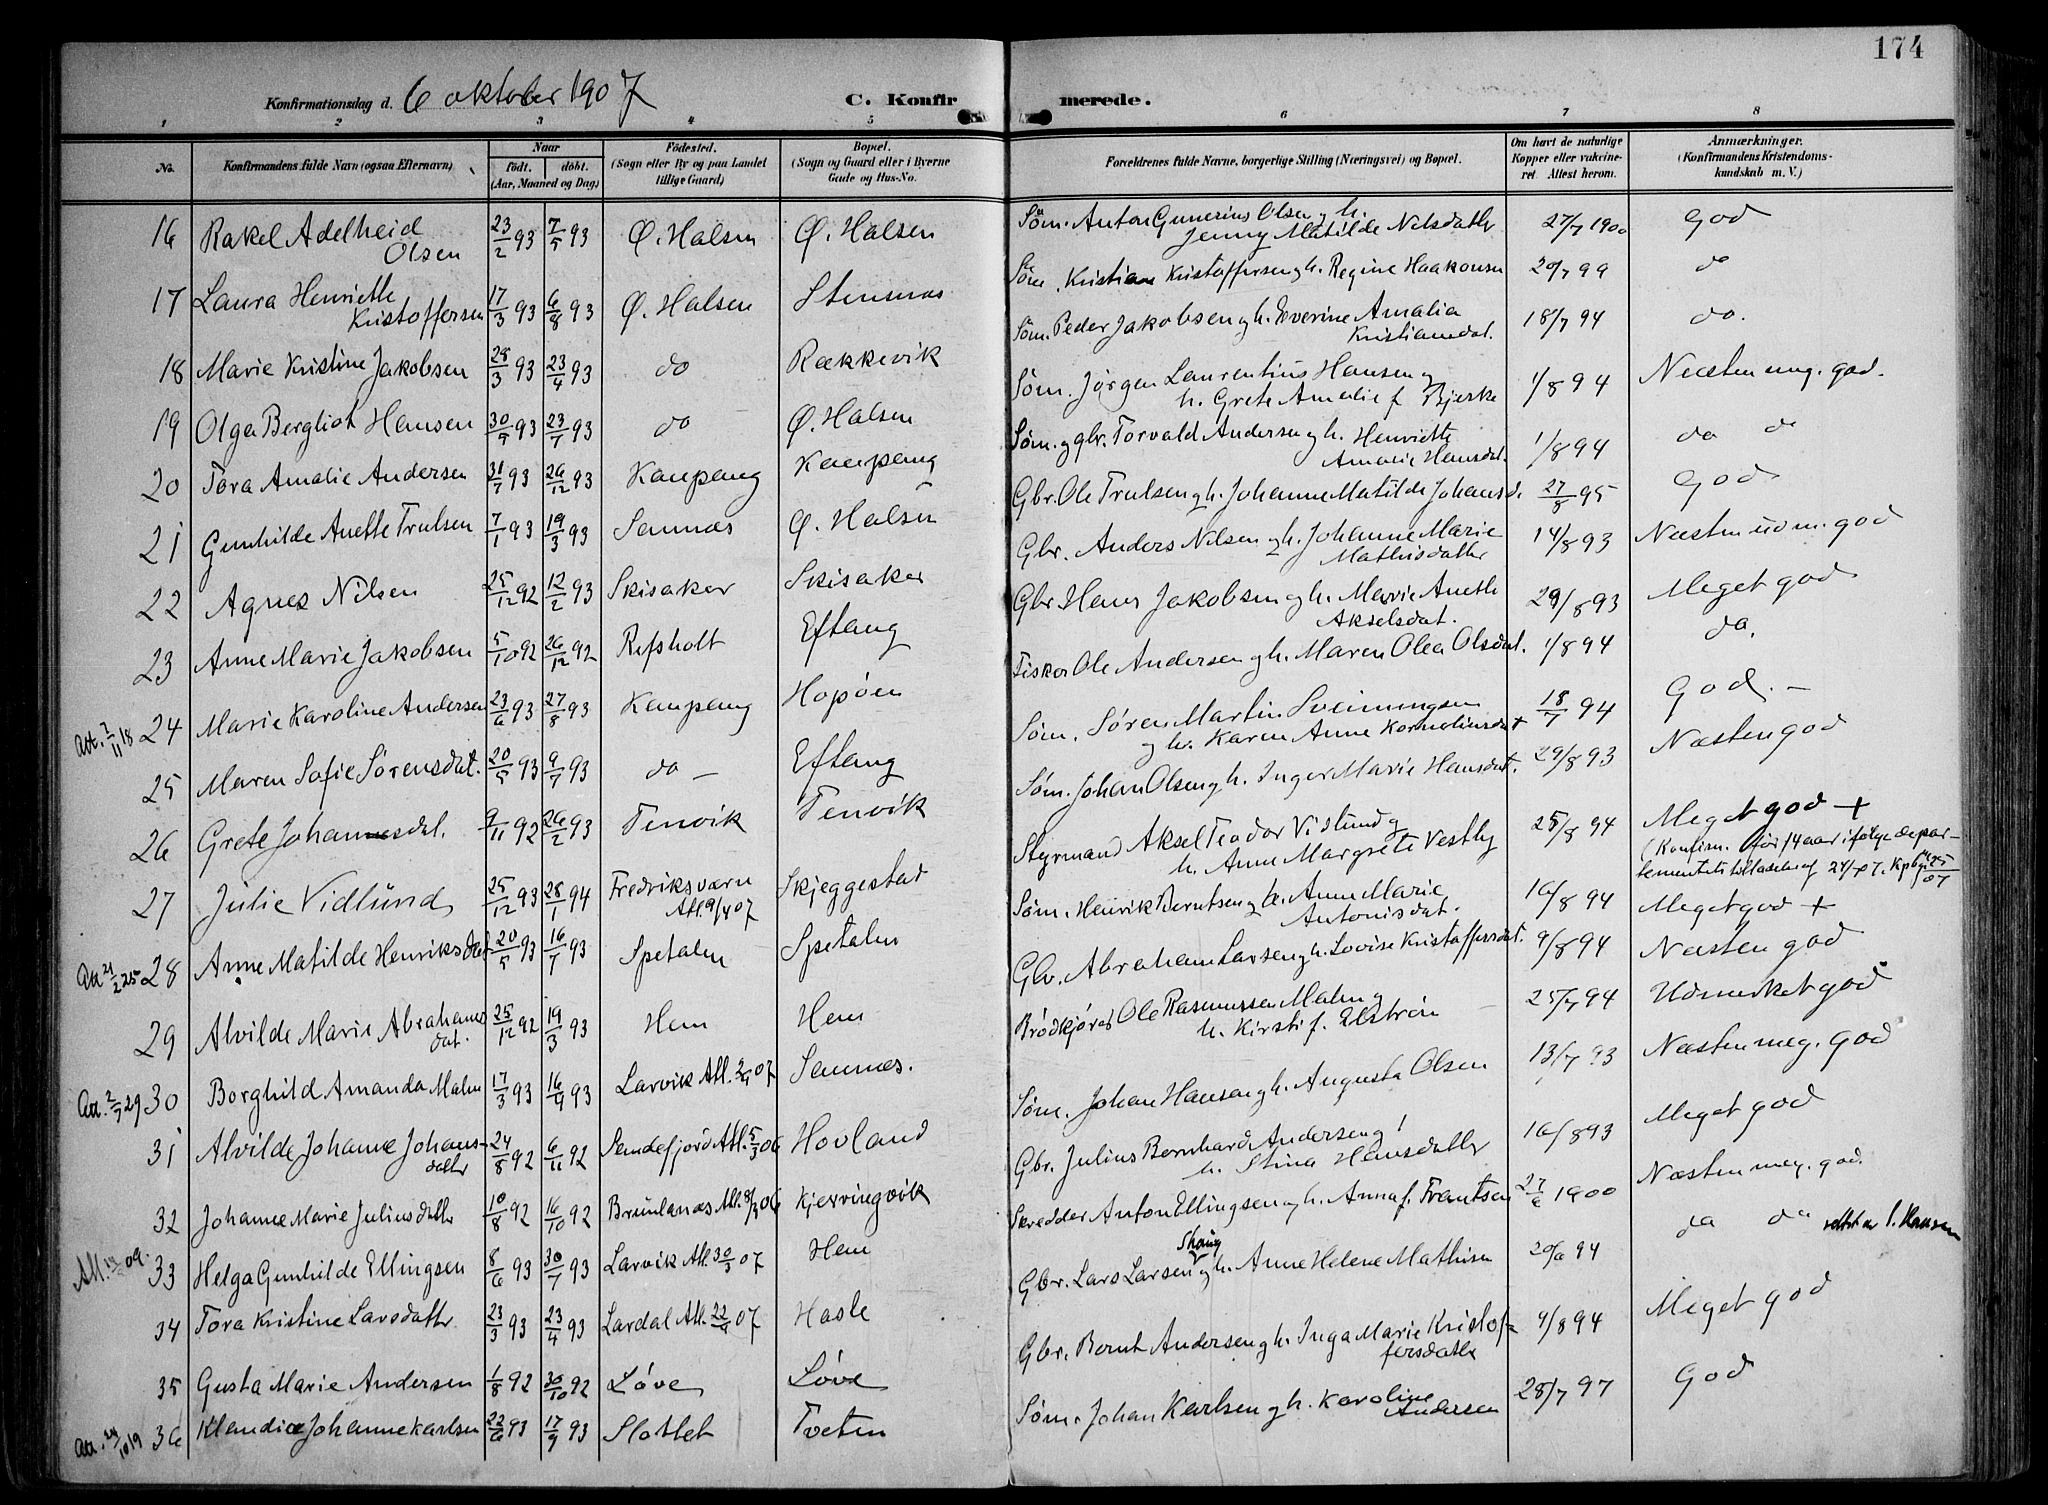 174
Konfirmationsdag d. 6 oktober 1907
C. Konfir merede.
1 2 3 4 5 6 7 8
No.
Konfirmandens fulde Navn (ogsaa Efternavn)
Naar
født. døbt.
(Aar, Maaned og Dag)
Fødested.
(Sogn eller By og paa Landet
tillige Gaard)
Bopæl.
(Sogn og Gaard eller i Byerne
Gade og Hus-No.
Forældrenes fulde Navne, borgerlige Stilling (Næringsvei) og Bopæl.
Om havt de naturlige
Kopper eller vakcine-
ret. Attest herom.
Anmærkninger.
(Konfirmandens Kristendoms-
kundskab m. V.)
16 Rakel Adelheid Olsen 23/2 93 7/5 93 Ø. Halsen Ø. Halsen Søm. Anton Gunerius Olsen og h. Jenny Matilde Nilsdattr 27/7 1900 God
17 Laura Henriette Kristoffersen 17/3 93 6/8 93 Ø. Halsen Stensnæs Søm. Kristian Kristoffersen og h. Regine Haakonsen 20/7 99 do
18 Marie Kristine Jakobsen 28/3 93 23/4 93 do Rækkevik Søm. Peder Jakobsen og h. Severine Amalia Kristiansdat. 18/7 94 do.
19 Olga Bergliot Hansen 23/7 93 do Ø. Halsen Søm. Jørgen Laurentius Hansen og h. Grete Amalie f. Bjerke 1/8 94 Næsten meg. god.
20 Tora Amalie Andersen 31/7 93 26/12 93 Kaupang Kaupang Søm. og gbr. Torvald Andersen og h. Henriette Amalie Hansdat. 1/8 94 do do
21 Gunhilde Anette Trulsen 7/1 93 19/3 93 Sannæs Ø. Halsen Gbr. Ole Trulsen og h. Johanne Matilde Johansd. 27/8 95 God
22 Agnes Nilsen 25/12 92 12/2 93 Skisaker Skisaker Gbr. Anders Nilsen og h. Johanne Marie Mathisdattr 14/8 93 Næsten udm. god
23 Anne Marie Jakobsen 5/10 92 26/12 92 Refsholt Eftang Gbr. Hans Jakobsen og h. Marie Anette Akselsdat. 29/8 93 Meget god
Att. 7/11 18 24 Marie Karoline Andersen 23/6 93 27/8 93 Kaupang Hopøen Fisker Ole Andersen og h. Maren Olea Olsdat. 1/8 94 do.
25 Maren Sofie Sørensdat. 20/5 93 9/7 93 do – Eftang Søm. Søren Martin Sveinungsen og h. Karen Anne Korneliusdat 18/7 94 God. –
26 Grete Johannesdat. 9/11 92 26/2 93 Tenvik Tenvik Søm. Johan Olsen og h. Inger Marie Hansdat. 29/8 93 Næsten god
27 Julie Vidlund 25/12 93 28/1 94 Fredriksværn Att. 9/4 07 Skjeggestad Styrmand Aksel Teodor Vidlund og h. Anne Margrete Vestby 25/8 94 Meget god +
(Konfirm. før 14 aar ifølge depar-
tementets tilladelse af 24/ 07.
28 Anne Matilde Henriksdat 20/5 93 16/7 93 Spetalen Spetalen Søm. Henrik Berntsen og h. Anne Marie Antonisdat. 16/8 94 Meget god +
29 Alvilde Marie Abrahamsdat. 25/12 92 19/3 93 Hem Hem Gbr. Abraham Larsen og h. Lovise Kristoffersdat. 9/8 94 Næsten god
Att. 2/7 29 30 Borghild Amanda Malm 17/3 93 16/9 93 Larvik Att. 07 Sannæs. Brødkjører Ole Rasmussen Malm og h. Kirsti f. Elstrøm 25/7 94 Udmerket god
31 Alvilde Johanne Johansdattr 24/8 92 6/11 92 Sandefjord Att. 5/3 06 Hovland Søm. Johan Hansen og h. Augusta Olsen 13/7 93 Næsten meg. god
32 Johanne Marie Juliusdattr 10/8 92 16/10 92 Brunlanæs Att. 8/3 06 Kjerringvik Gbr. Julius Bernhard Andersen og h. Stina Hansdattr 16/8 93 Meget god
33 Helga Gunhilde Ellingsen 8/6 93 30/7 93 Larvik Att. 30/3 07 Hem Skredder Anton Ellingsen og h. Anna f. Frantsen 27/6 1900 Næsten meg. god.
34 Tora Kristine Larsdattr 23/3 93 23/4 93 Lardal Att. 22/9 07 Hasle Gbr. Lars Larsen Skaug og h. Anne Helene Mathisen 94 do do
35 Gusta Marie Andersen 1/8 92 30/10 92 Løve Løve Gbr. Bernt Andersen og h. Inga Marie Kristoffersdattr 9/8 94 Meget god
36 Klaudia Johanne Karlsen 22/6 93 17/9 93 Slottet Tveten Søm. Johan Karlsen og h. Karoline Andersen 28/7 97 God